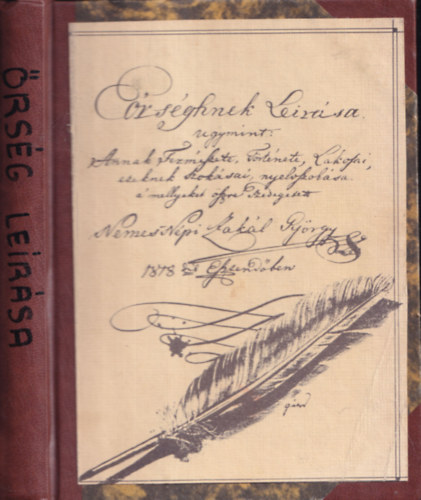 ŐRSÉG LEÍRÁSA
Eőrséghnek Leirása.
ugymint:
Annak Természete, Története, Lakosai,
ezeknek szokásai, nyelvszokása.
a' mellyeket öszve szedegetett
Nemes Népi Zakál György
1818dik Esztendőben